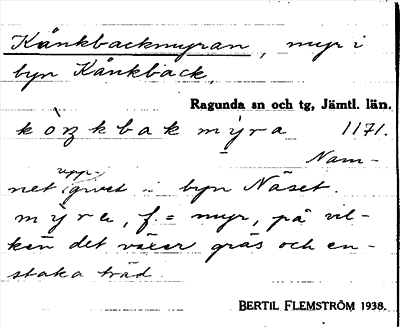 Kånkbackmyran, myr i
byn Kånkback.
Ragunda sn och tg, Jämtl. län.
kòŋkbakmỳra 1171.
Nam-
net uppgivet i byn Näset.
mỳra, f. = myr, på vil-
ken det växer gräs och en-
staka träd.
BERTIL FLEMSTRÖM 1938.